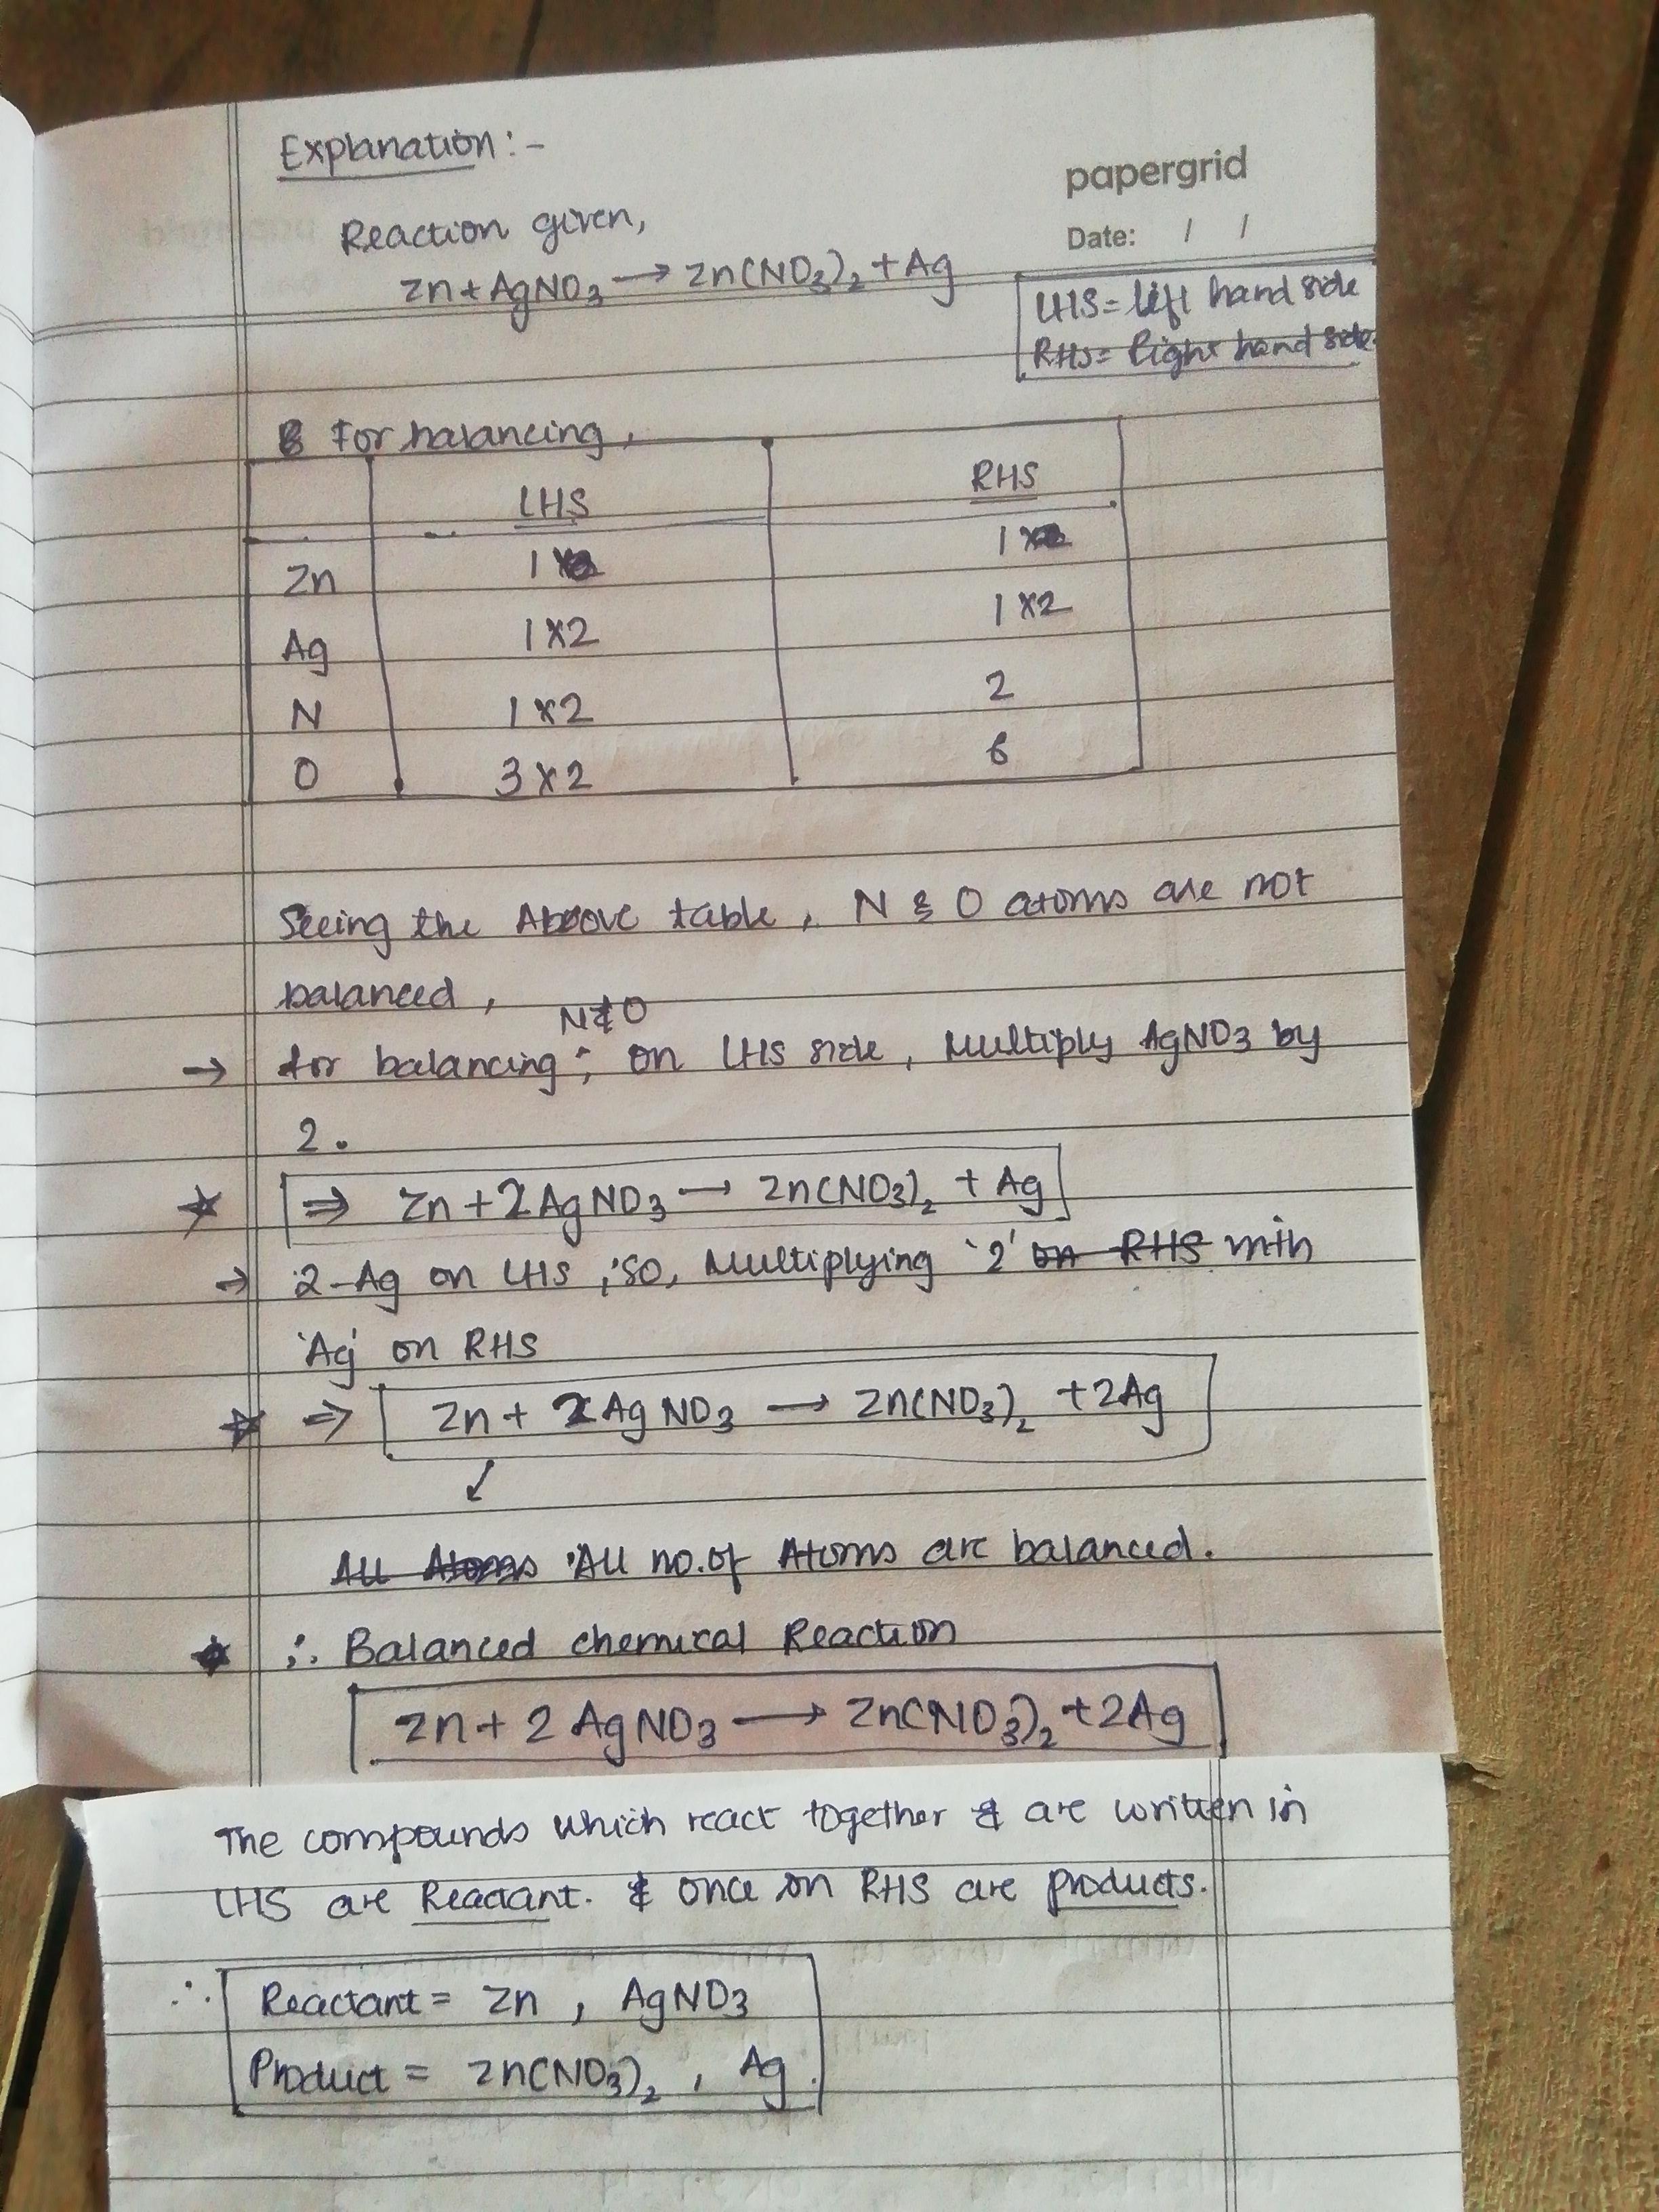 Explanation:-
papergrid
Reaction given,
Date: / /
Zn + AgNO3 → Zn(NO3)2 + Ag
LHS = left hand side
RHS = Right hand side
For balancing,
LHS RHS
Zn 1 1
Ag 1×2 1×2
N 1×2 2
O 3×2 6
Seeing the Above table, N & O atoms are not
balanced,
N & O
→ for balancing; on LHS side, Multiply AgNO3 by
2.
⇒ Zn + 2AgNO3 → Zn(NO3)2 + Ag
→ 2-Ag on LHS, so, Multiplying '2' on RHS with
'Ag' on RHS
⇒ Zn + 2AgNO3 → Zn(NO3)2 + 2Ag
All Atoms All no. of Atoms are balanced.
∴ Balanced chemical Reaction
Zn + 2AgNO3 → Zn(NO3)2 + 2Ag
The compounds which react together & are written in
LHS are Reactant. & once on RHS are products.
∴ Reactant = Zn, AgNO3
Product = Zn(NO3)2, Ag.